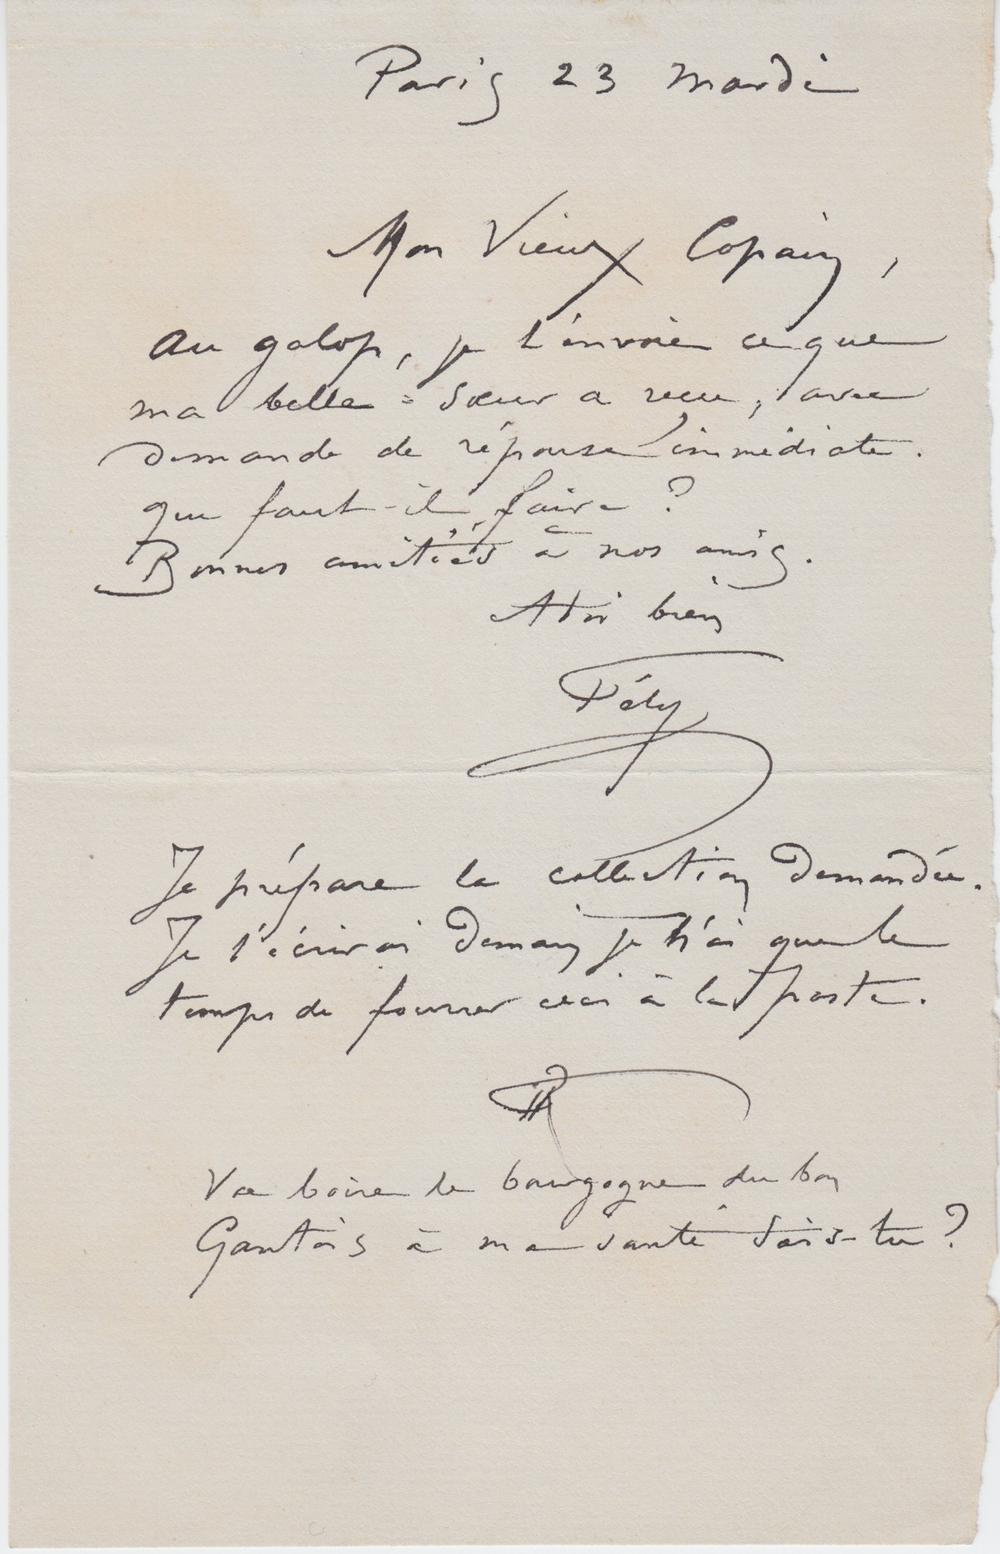 Paris 23 Mardi
Mon Vieux Copain,
Au galop, je t'envoie ce que
ma belle = sœur a reçu, avec
demande de réponse immédiate.
que faut-il faire ?
Bonnes amitiés à nos amis.
A toi bien
Fély
Je prépare la collection demandée.
Je t'écrirai demain je n'ai que le
temps de fourrer ceci à la poste.
Va boire le bourgogne du bon
Gantois à ma santé sais-tu ?